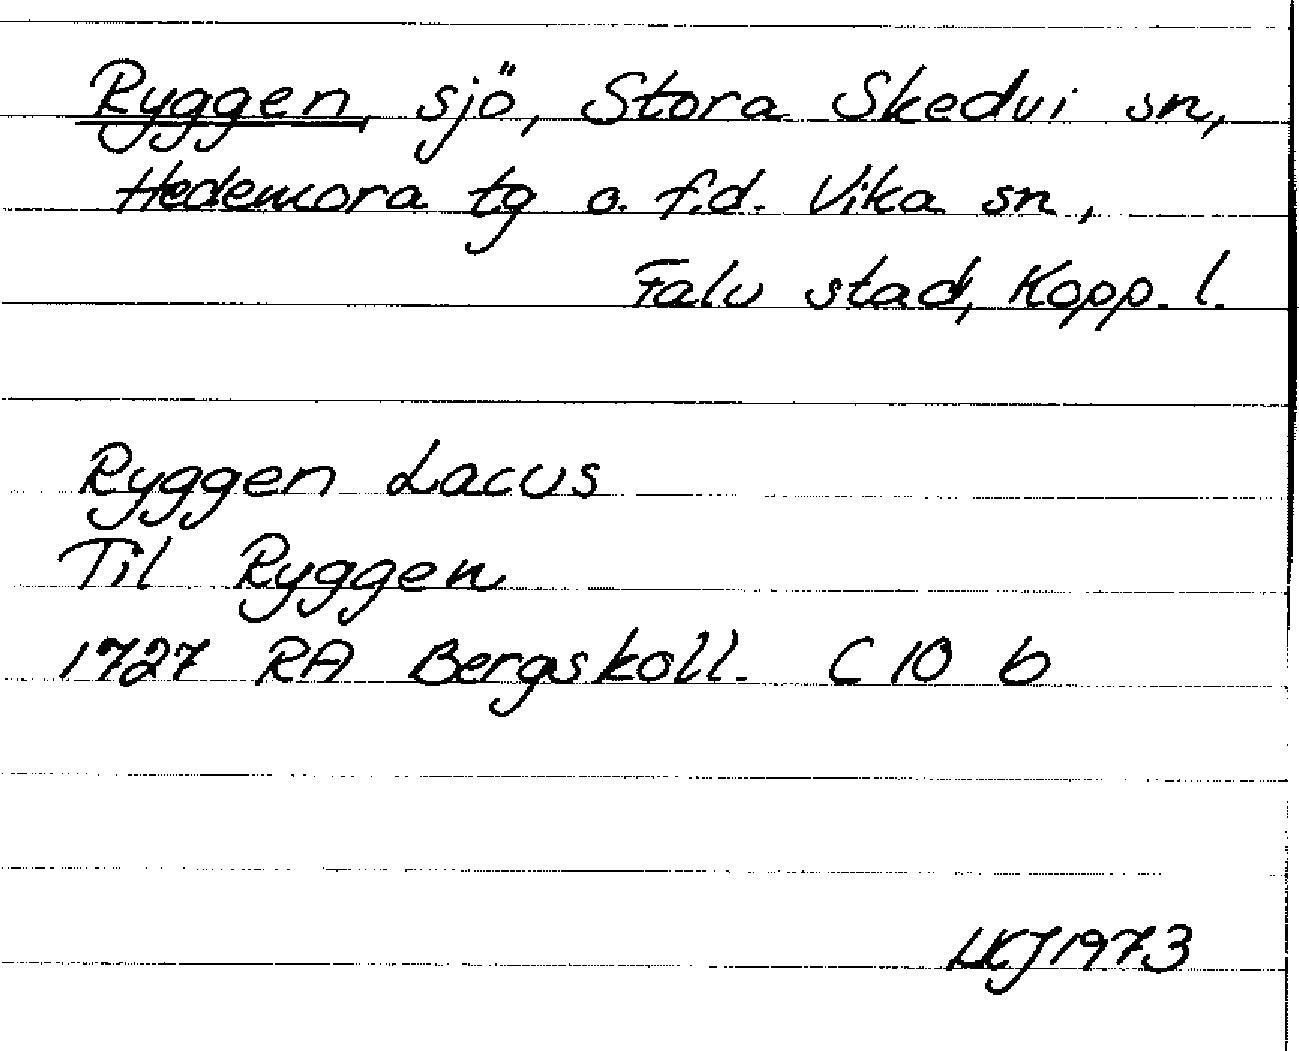 Ryggen, sjö, Stora Skedvi sn,
Hedemora tg o. f.d. Vika sn,
Falu stad, Kopp. l.
Ryggen Lacus
Til Ryggen
1727 RA Bergskoll. C 10 b
LKJ 1973